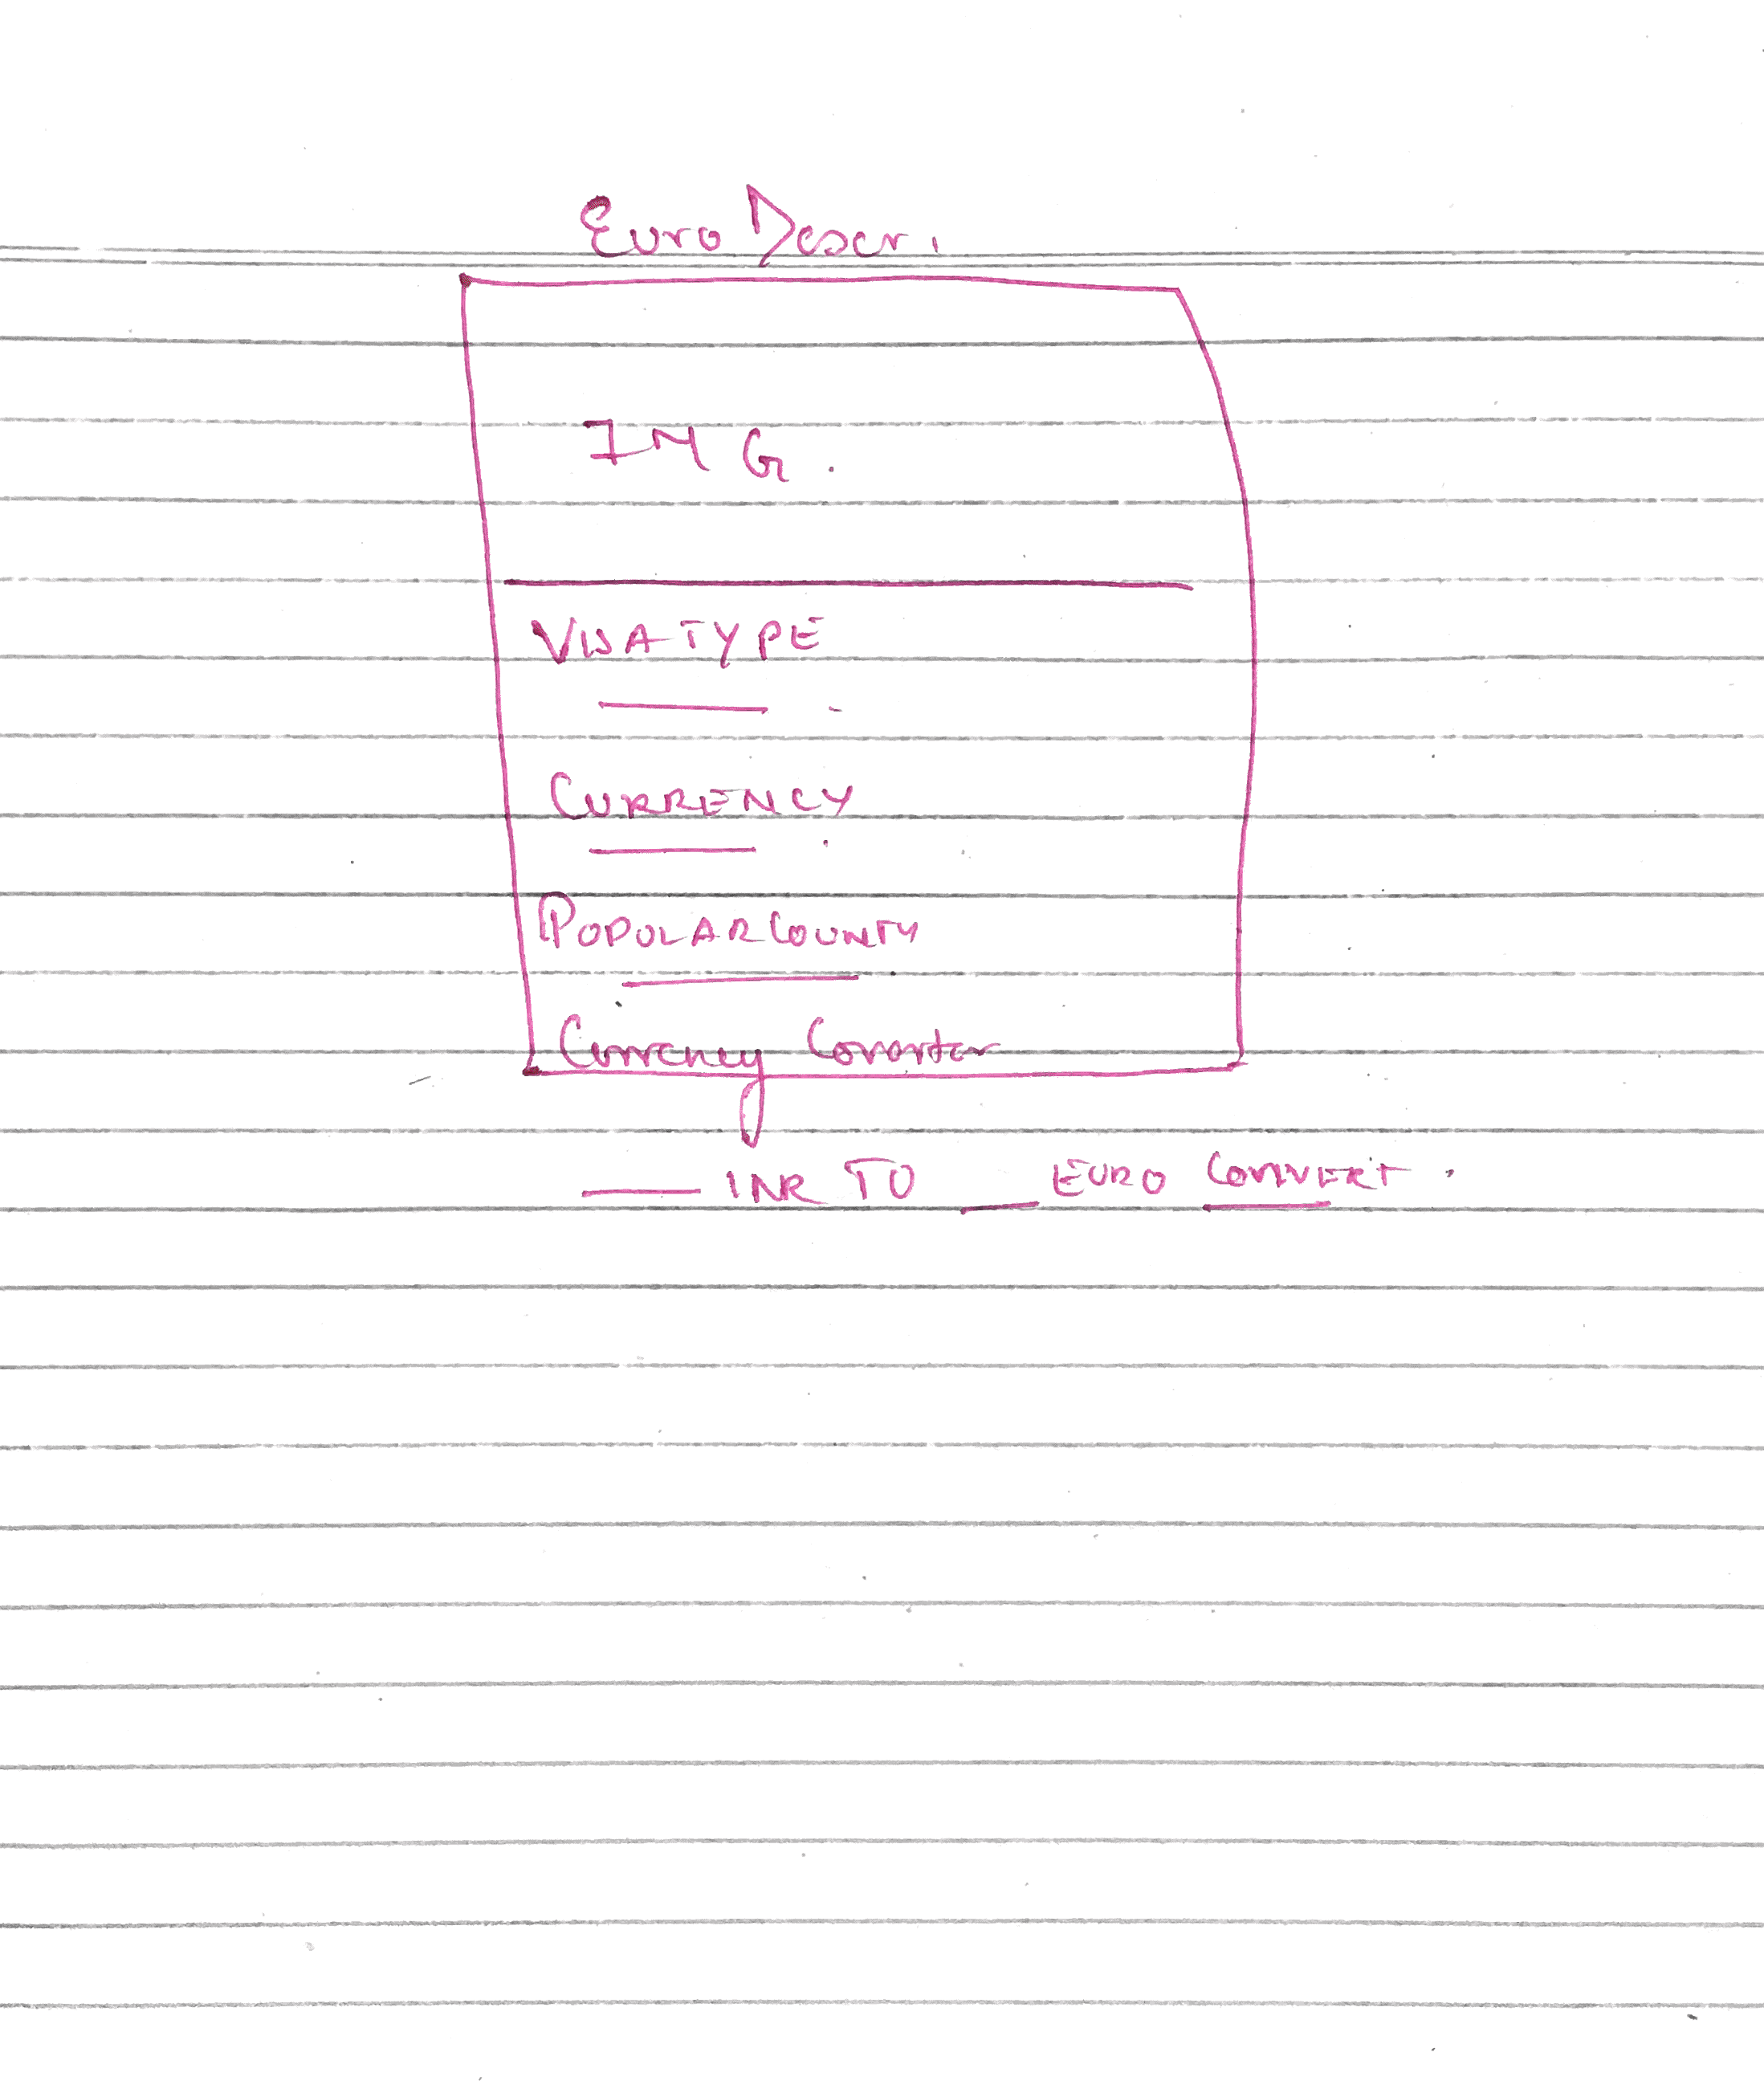 Euro Descr.
IMG.
VISA TYPE
CURRENCY
POPULAR COUNTY
Currency Convertor
INR TO EURO CONVERT.